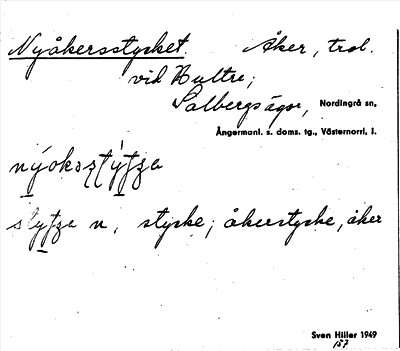 Nyåkersstycket. Åker, trol.
vid Bultre;
Salbergsägor, Nordingrå sn,
Ångermanl. s. doms. tg., Västernorrl. l.
styche; åkerstycke, åker
Sven Hiller 1949
157